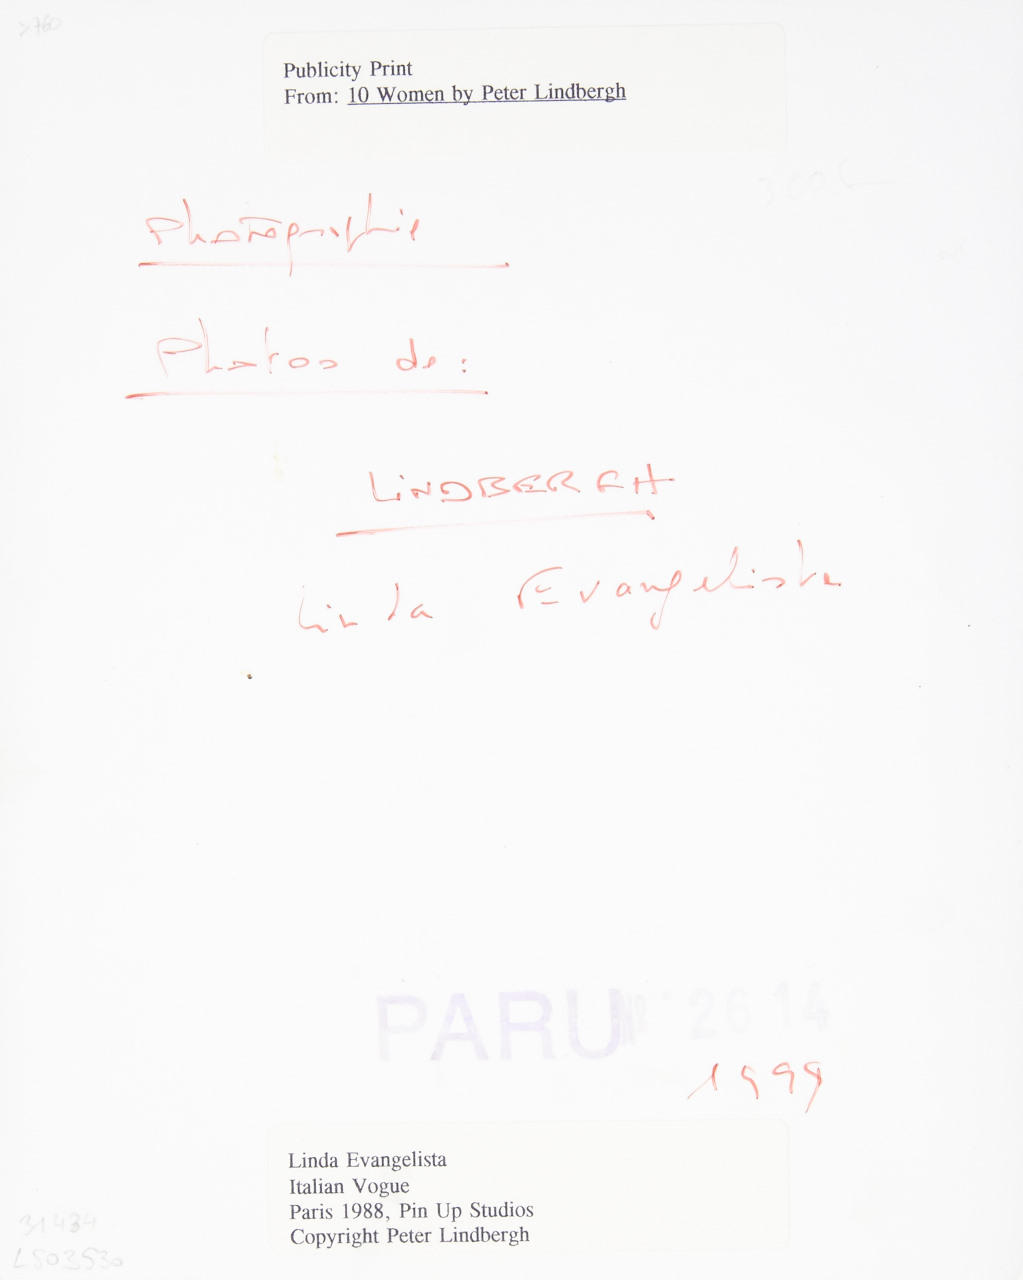 >760
Publicity Print
From: 10 Women by Peter Lindbergh
Photographie
Photos de:
LINDBERGH
Linda Evangelista
PARU Nº 2614
1999
Linda Evangelista
Italian Vogue
Paris 1988, Pin Up Studios
Copyright Peter Lindbergh
31434
LS03530